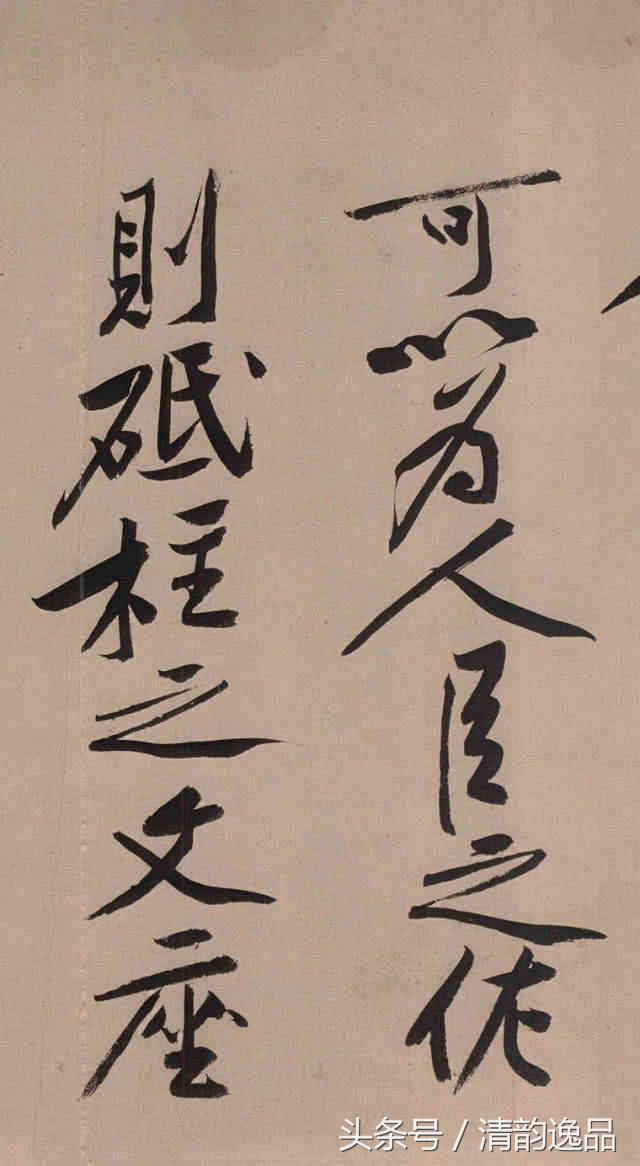 可以為人臣之佐
則砥柱之文座
头条号 / 清韵逸品